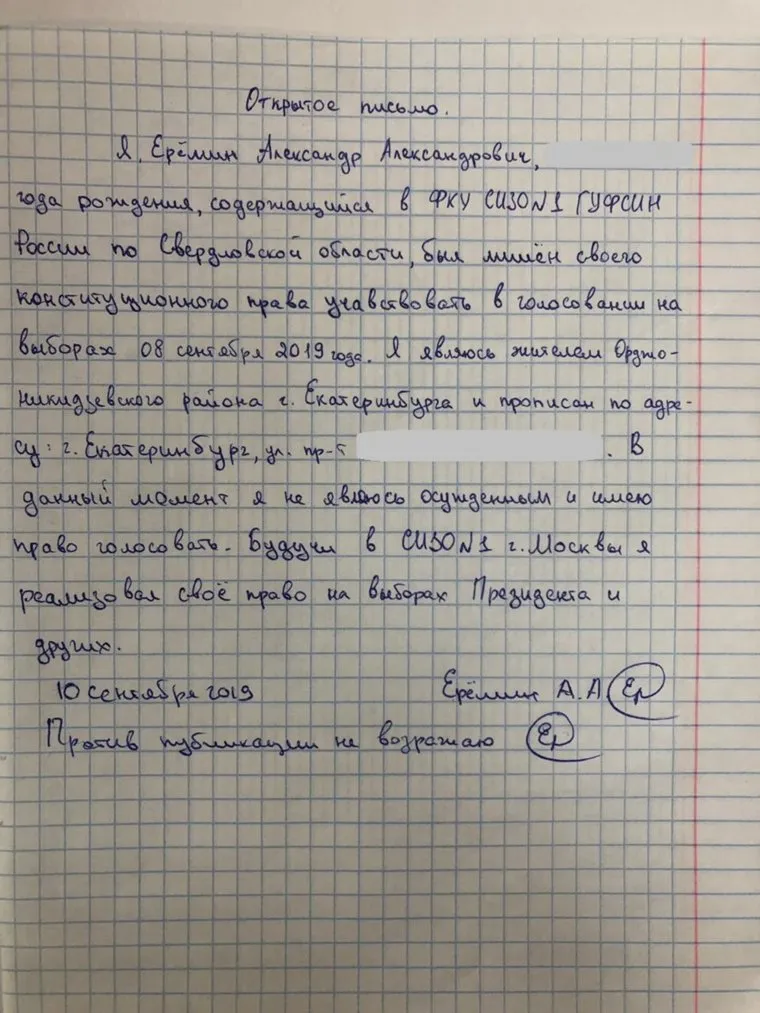 Открытое письмо.
Я, Ерёмин Александр Александрович,
года рождения, содержащийся в ФКУ СИЗО N1 ГУФСИН
России по Свердловской области, был лишён своего
конституционного права учавствовать в голосовании на
выборах 08 сентября 2019 года. Я являюсь жителем Орджо-
никидзевского района г. Екатеринбурга и прописан по адре-
су: г. Екатеринбург, ул. пр-т . В
данный момент я не являюсь осужденным и имею
право голосовать. Будучи в СИЗО N1 г. Москвы я
реализовал своё право на выборах Президента и
других.
10 сентября 2019 Ерёмин А.А Ер
Против публикации не возражаю Ер